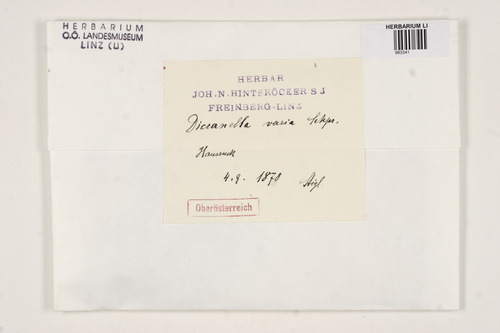 HERBARIUM
O.Ö. LANDESMUSEUM
LINZ (LI)
HERBARIUM LI
HERBAR
JOH. N. HINTERÖCKER S J
FREINBERG-LINZ
Dicranella varia Schpr.
4. 9. 1878
Oberösterreich